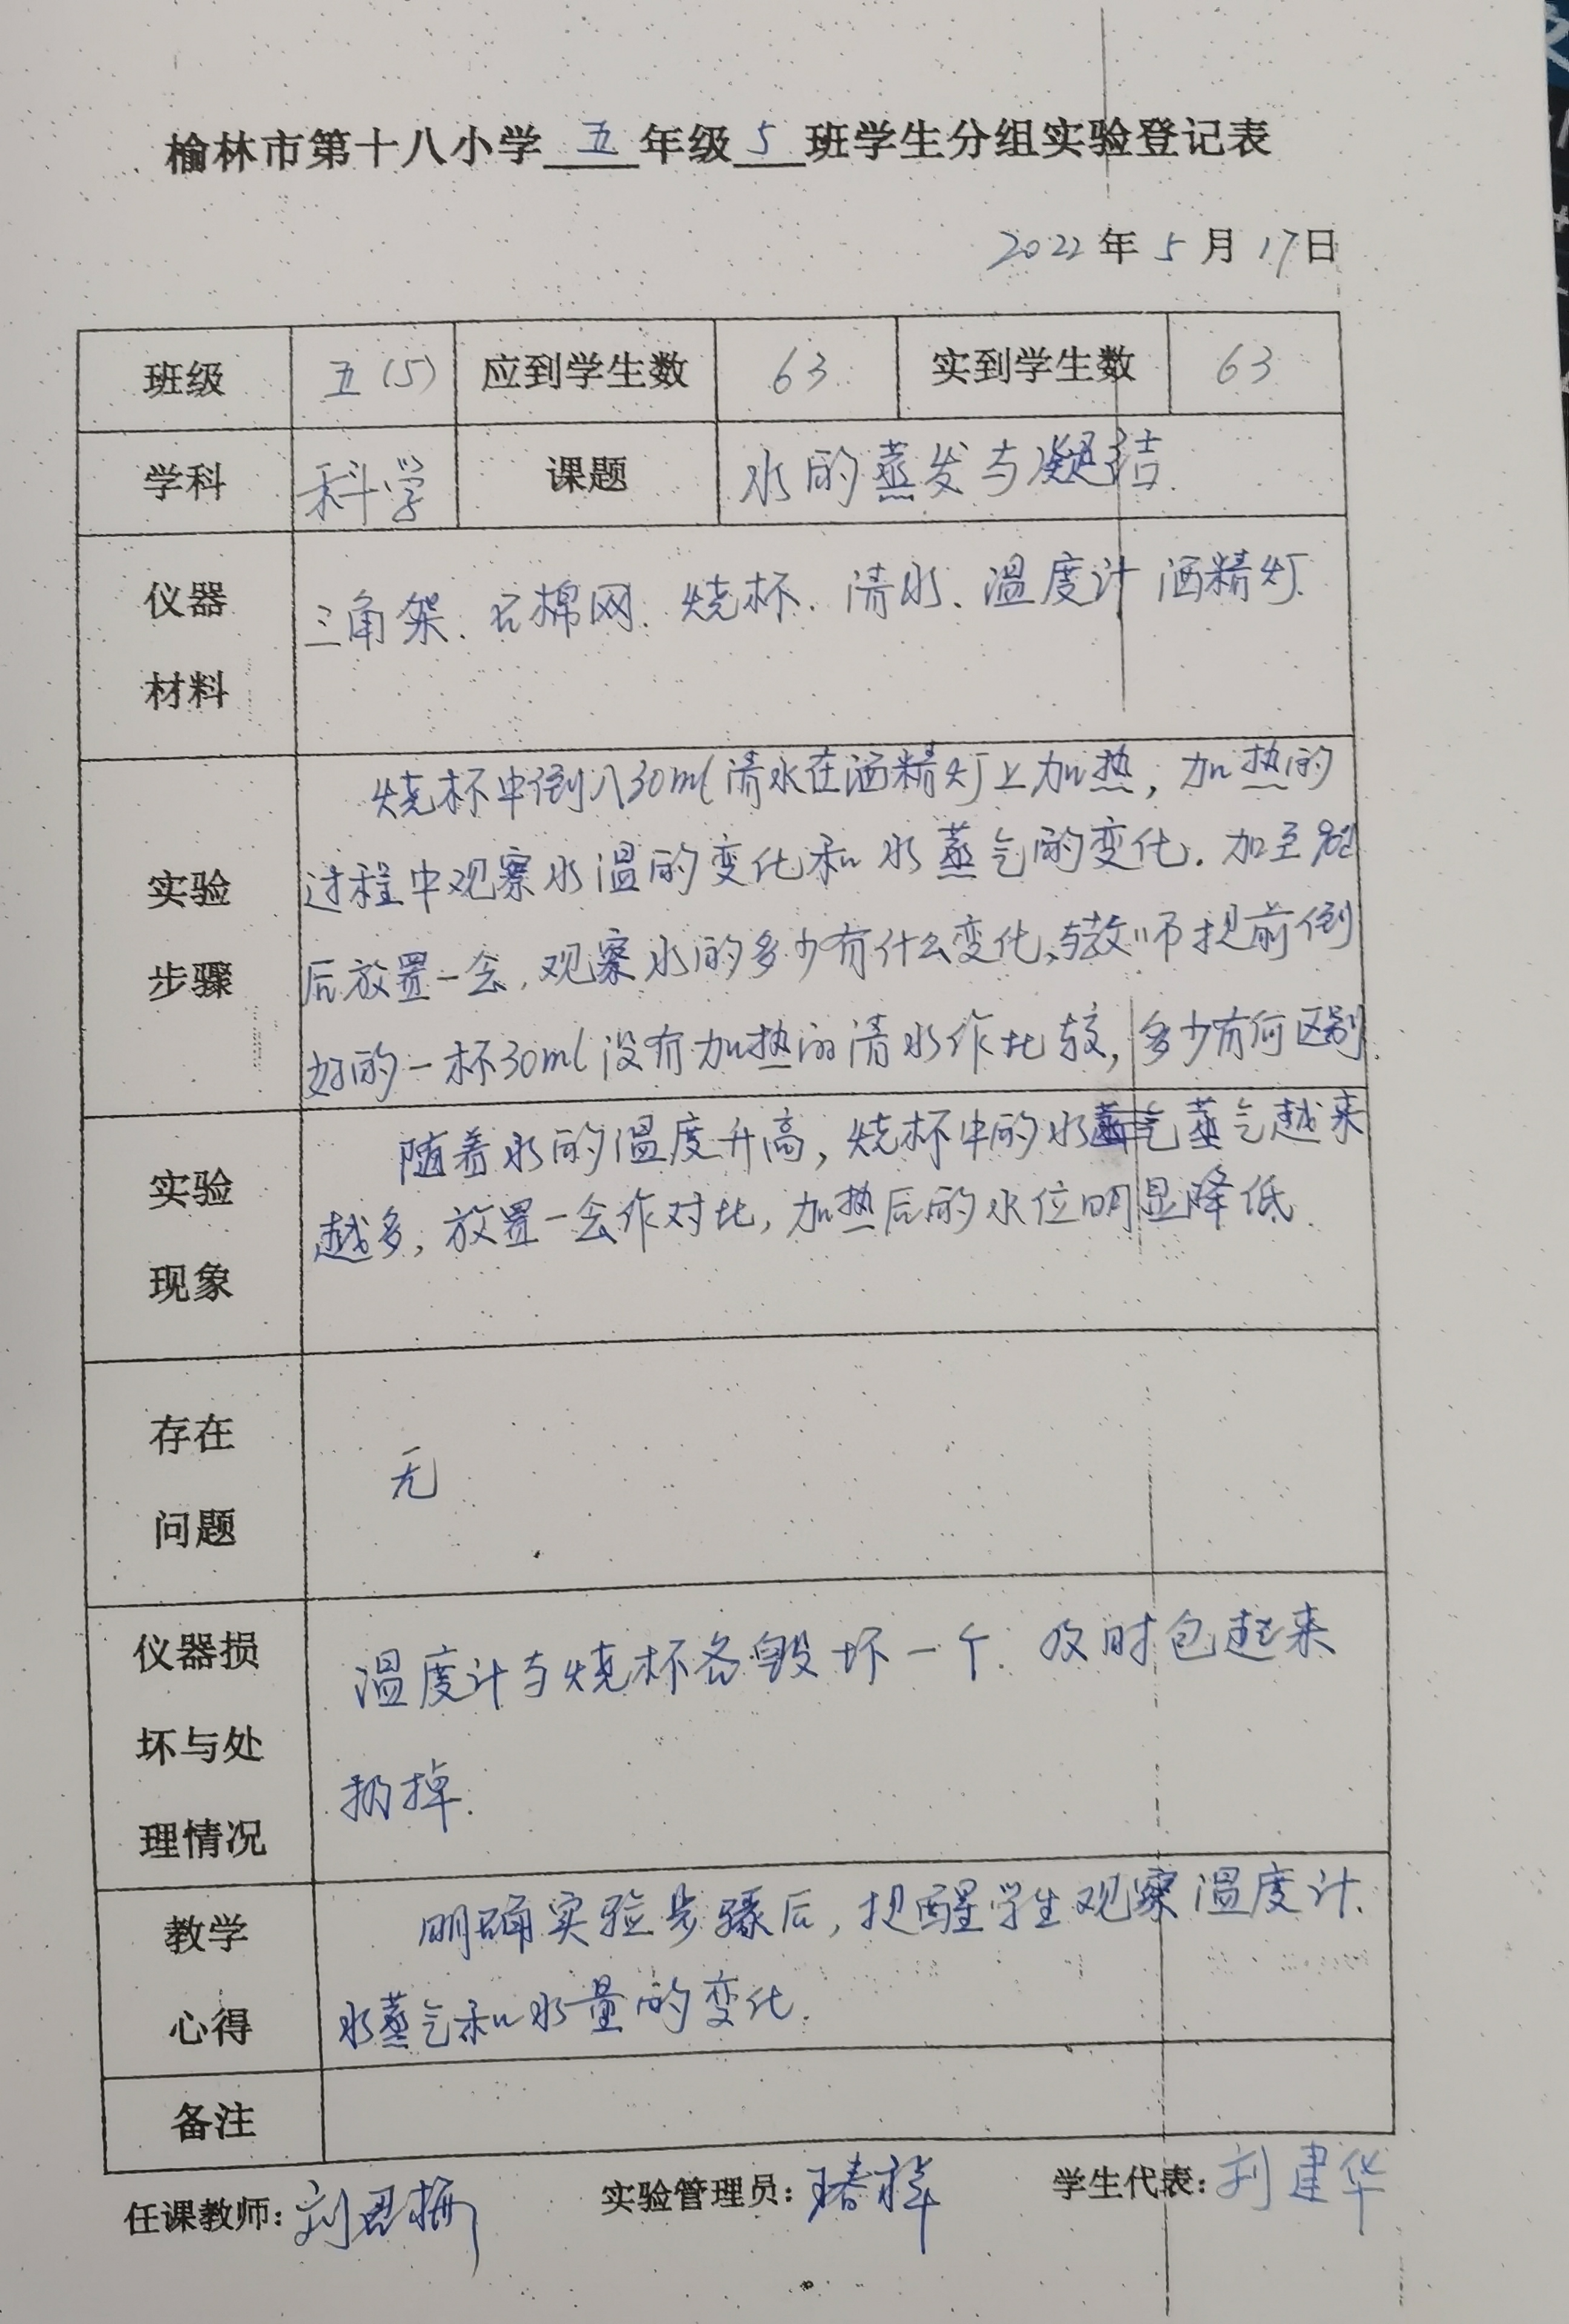 榆林市第十八小学 五 年级 5 班学生分组实验登记表
2022年5月17日
班级 五(5) 应到学生数 63 实到学生数 63
学科 科学 课题 水的蒸发与凝结
仪器
材料
三角架、石棉网、烧杯、清水、温度计 酒精灯.
实验
步骤
烧杯中倒入30ml清水在酒精灯上加热，加热的
过程中观察水温的变化和水蒸气的变化. 加至
后放置一会, 观察水的多少有什么变化,与教师提前倒
好的一杯30ml没有加热的清水作比较, 多少有何区别.
实验
现象
随着水的温度升高, 烧杯中的水蒸气越来
越多, 放置一会作对比, 加热后的水位明显降低.
存在
问题
无
仪器损
坏与处
理情况
温度计与烧杯各毁坏一个. 及时包起来
扔掉.
教学
心得
明确实验步骤后, 提醒学生观察温度计.
水蒸气和水量的变化.
备注
任课教师: 刘 实验管理员: 学生代表: 刘建华